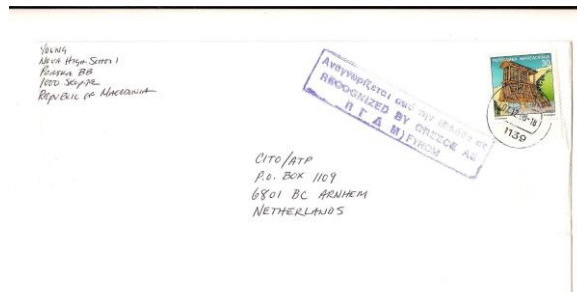 YOUNG
NOVA HIGH SCHOOL
PRASKA BB
1000 SKOPJE
REPUBLIC OF MACEDONIA
Αναγνωρίζεται από την Ελλάδα ως
RECOGNIZED BY GREECE AS
Π Γ Δ Μ) FYROM
30
1139
CITO/ATP
P.O. BOX 1109
6801 BC ARNHEM
NETHERLANDS